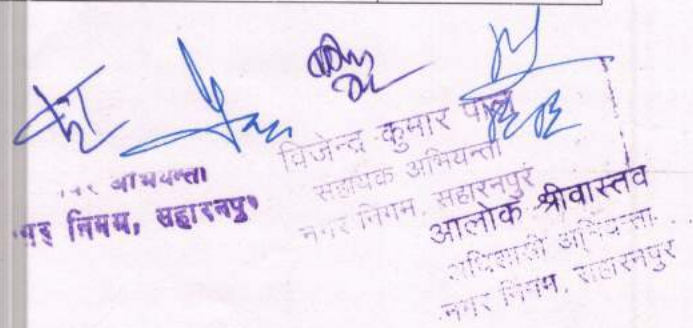 अभियन्ता
नगर निगम, सहारनपुर
विजेन्द्र कुमार पाल
सहायक अभियन्ता
नगर निगम, सहारनपुर
आलोक श्रीवास्तव
अधिशासी अभियन्ता
नगर निगम, सहारनपुर